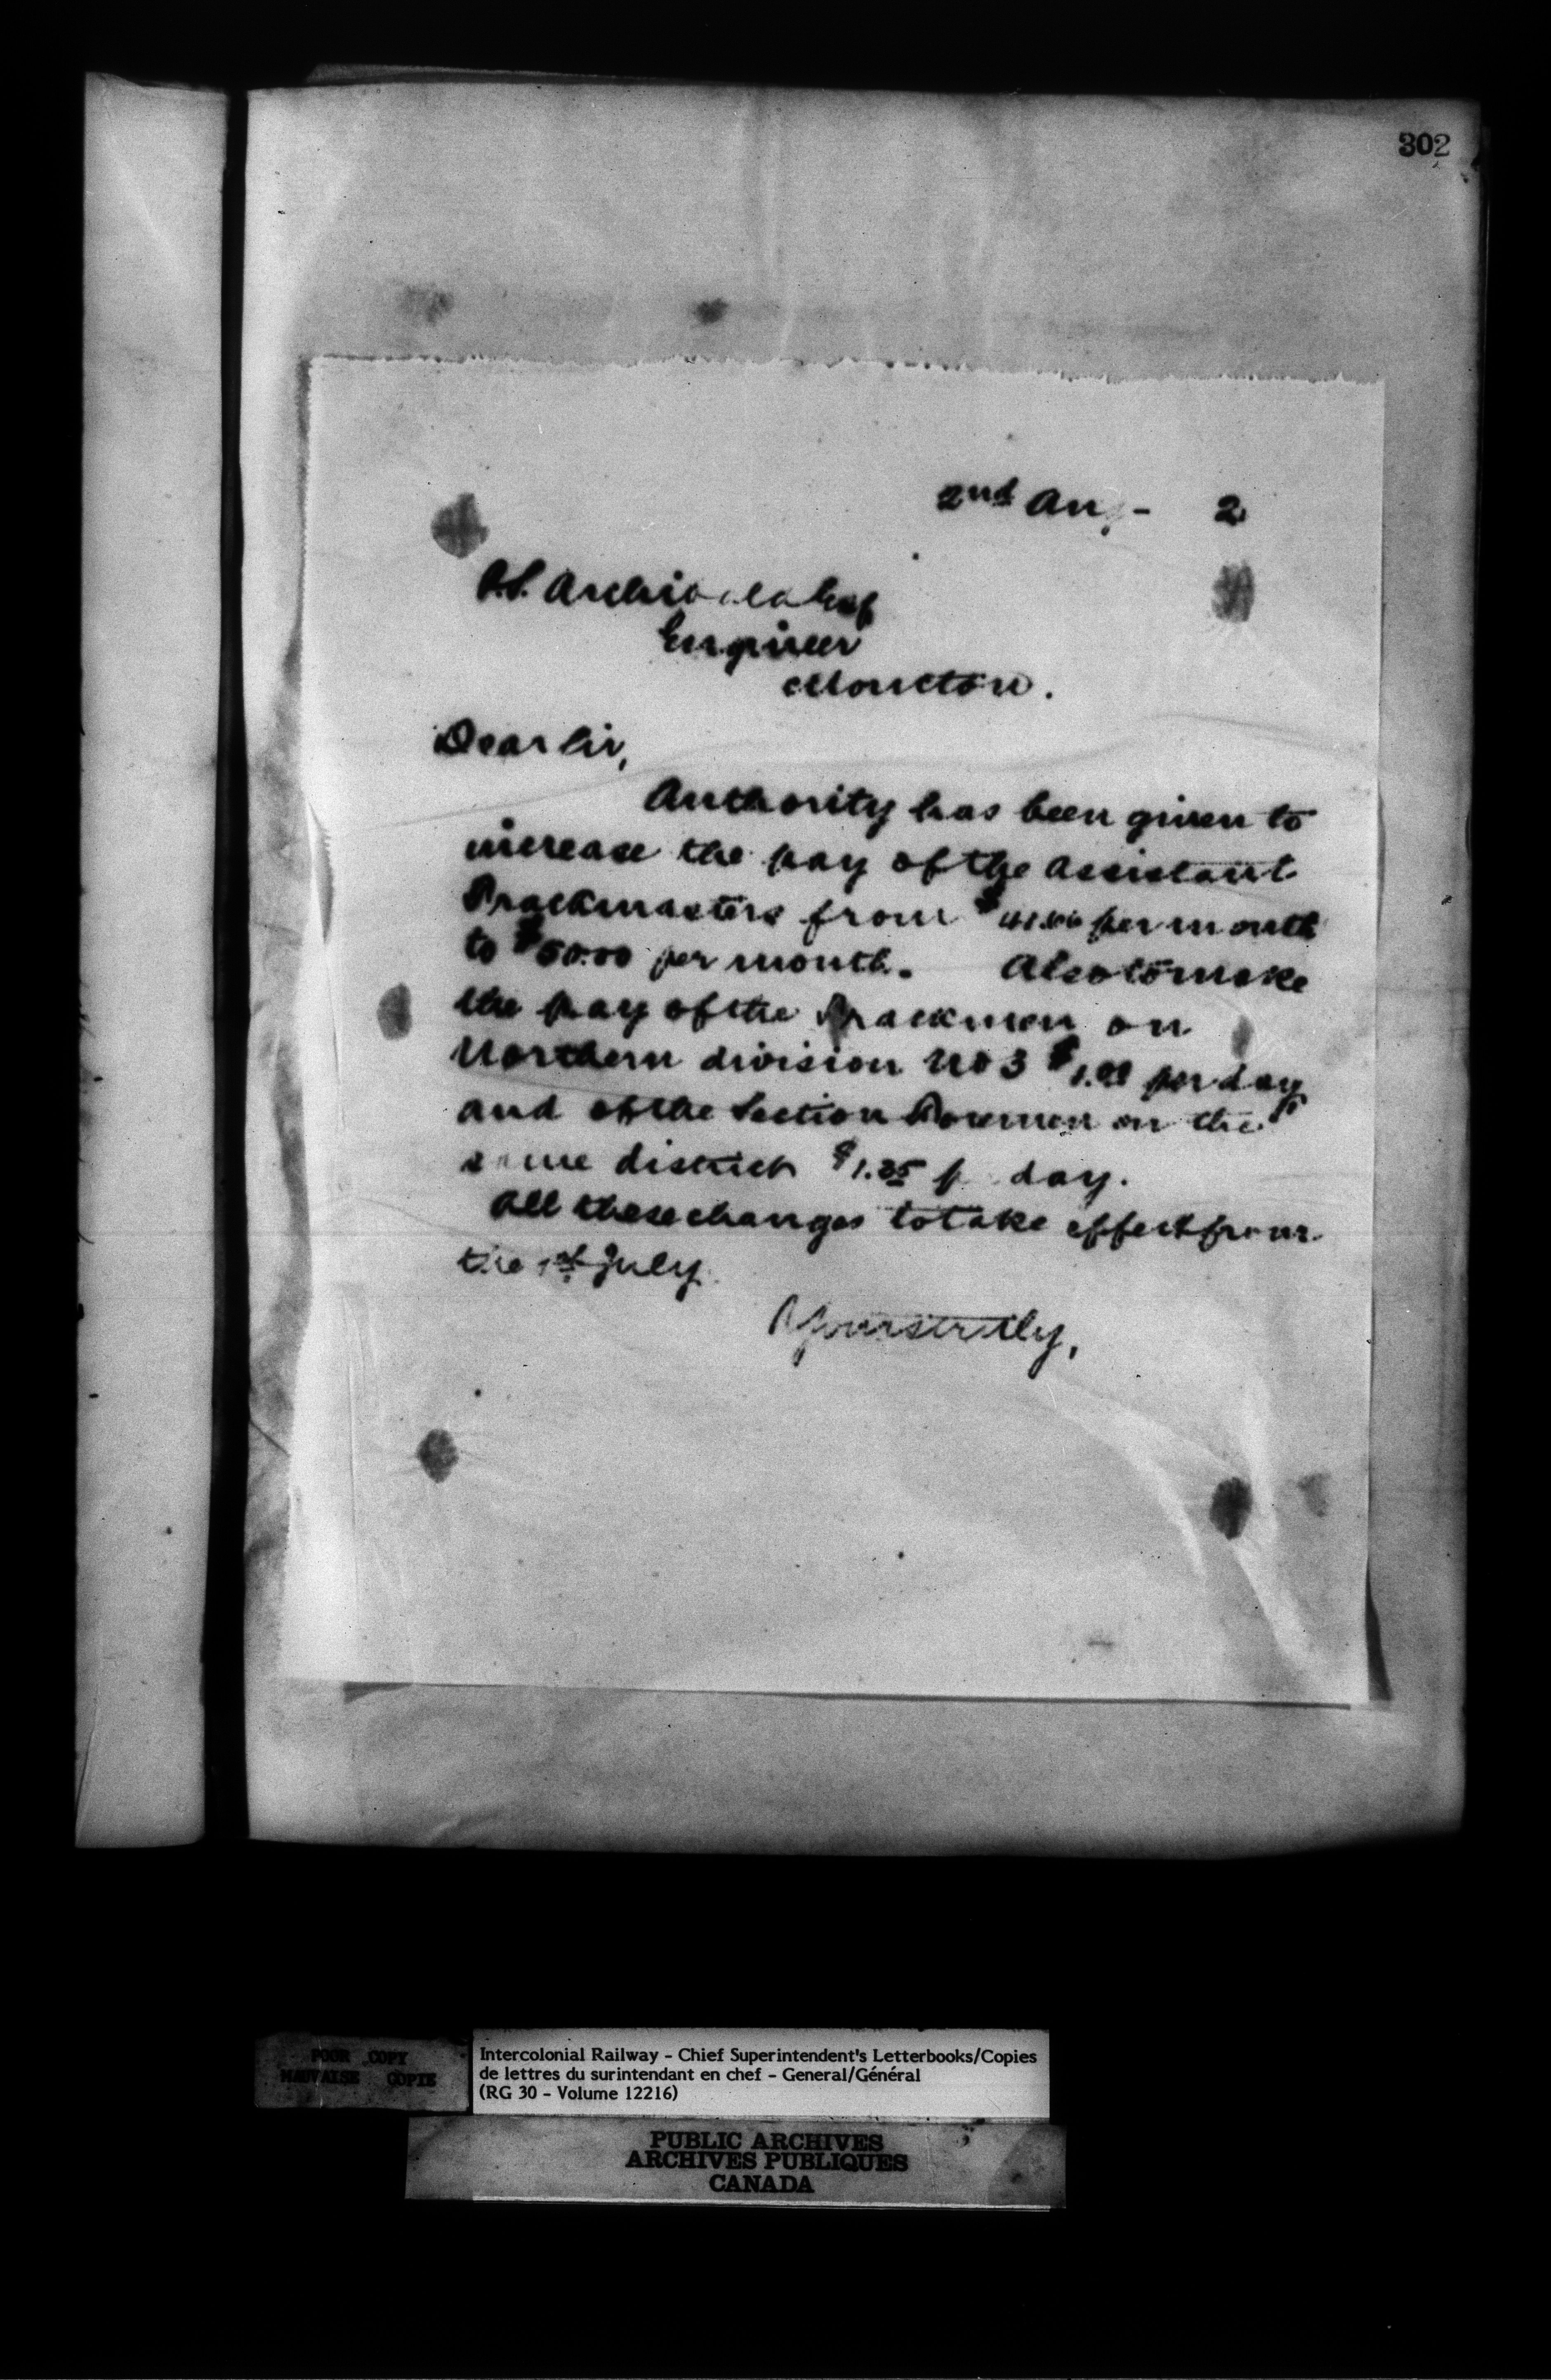 302
2nd Aug - 2
P.S. Archibald Esq
Engineer
Moncton.
Dear Sir,
Authority has been given to
increase the pay of the Assistant
Trackmasters from $ per month
to $50.00 per month. Also to make
the pay of the Trackmen on
Northern division No 3 per day
and of the Section Foremen on the
same district $1.35 p day.
All these changes to take effect from
the 1st July
Yours truly,
POOR COPY
MAUVAISE COPIE
Intercolonial Railway - Chief Superintendent's Letterbooks/Copies
de lettres du surintendant en chef - General/Général
(RG 30 - Volume 12216)
PUBLIC ARCHIVES
ARCHIVES PUBLIQUES
CANADA